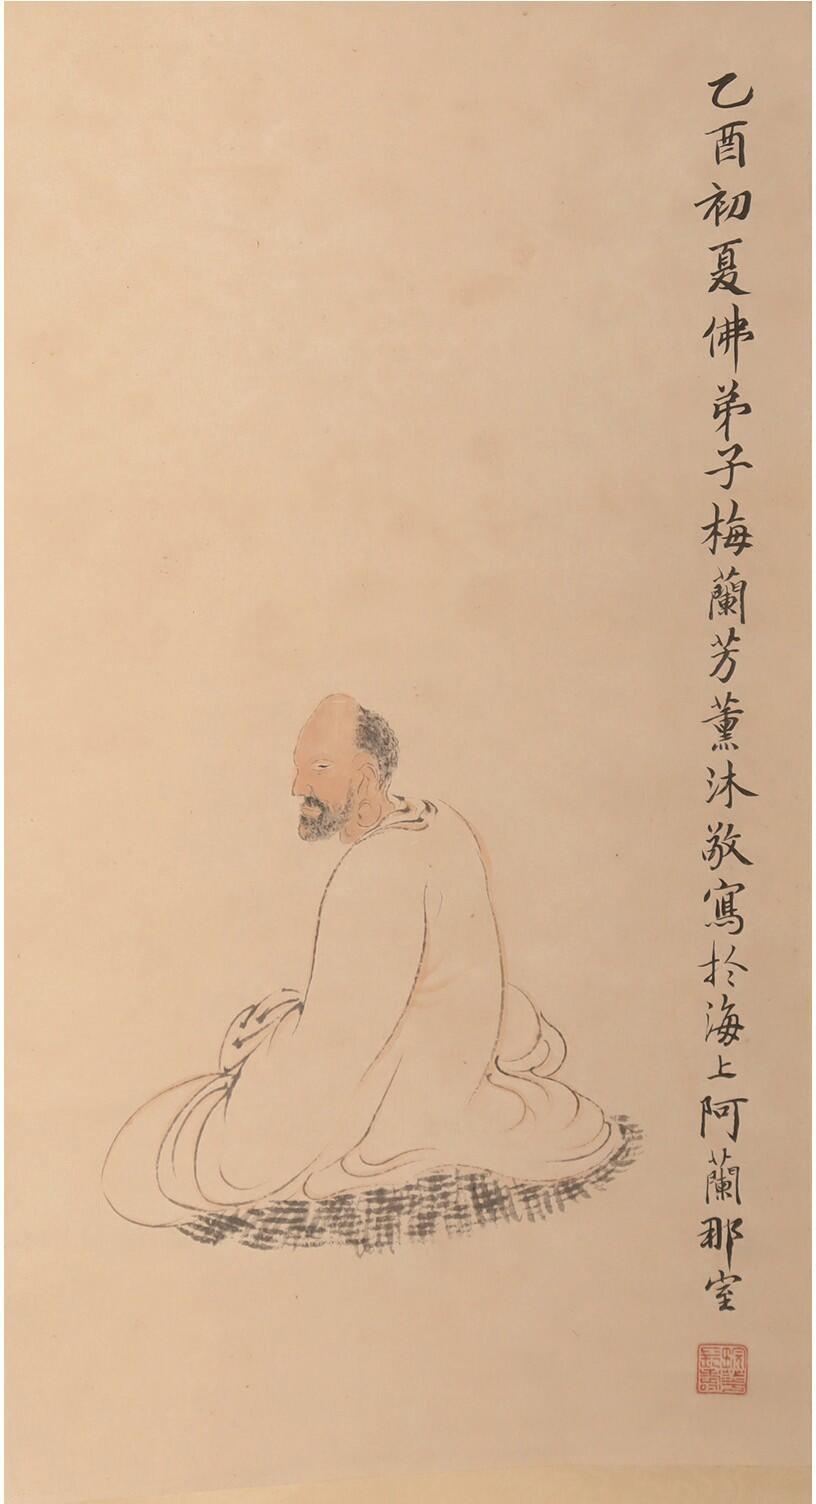 乙酉初夏佛弟子梅蘭芳薰沐敬寫於海上阿蘭那室